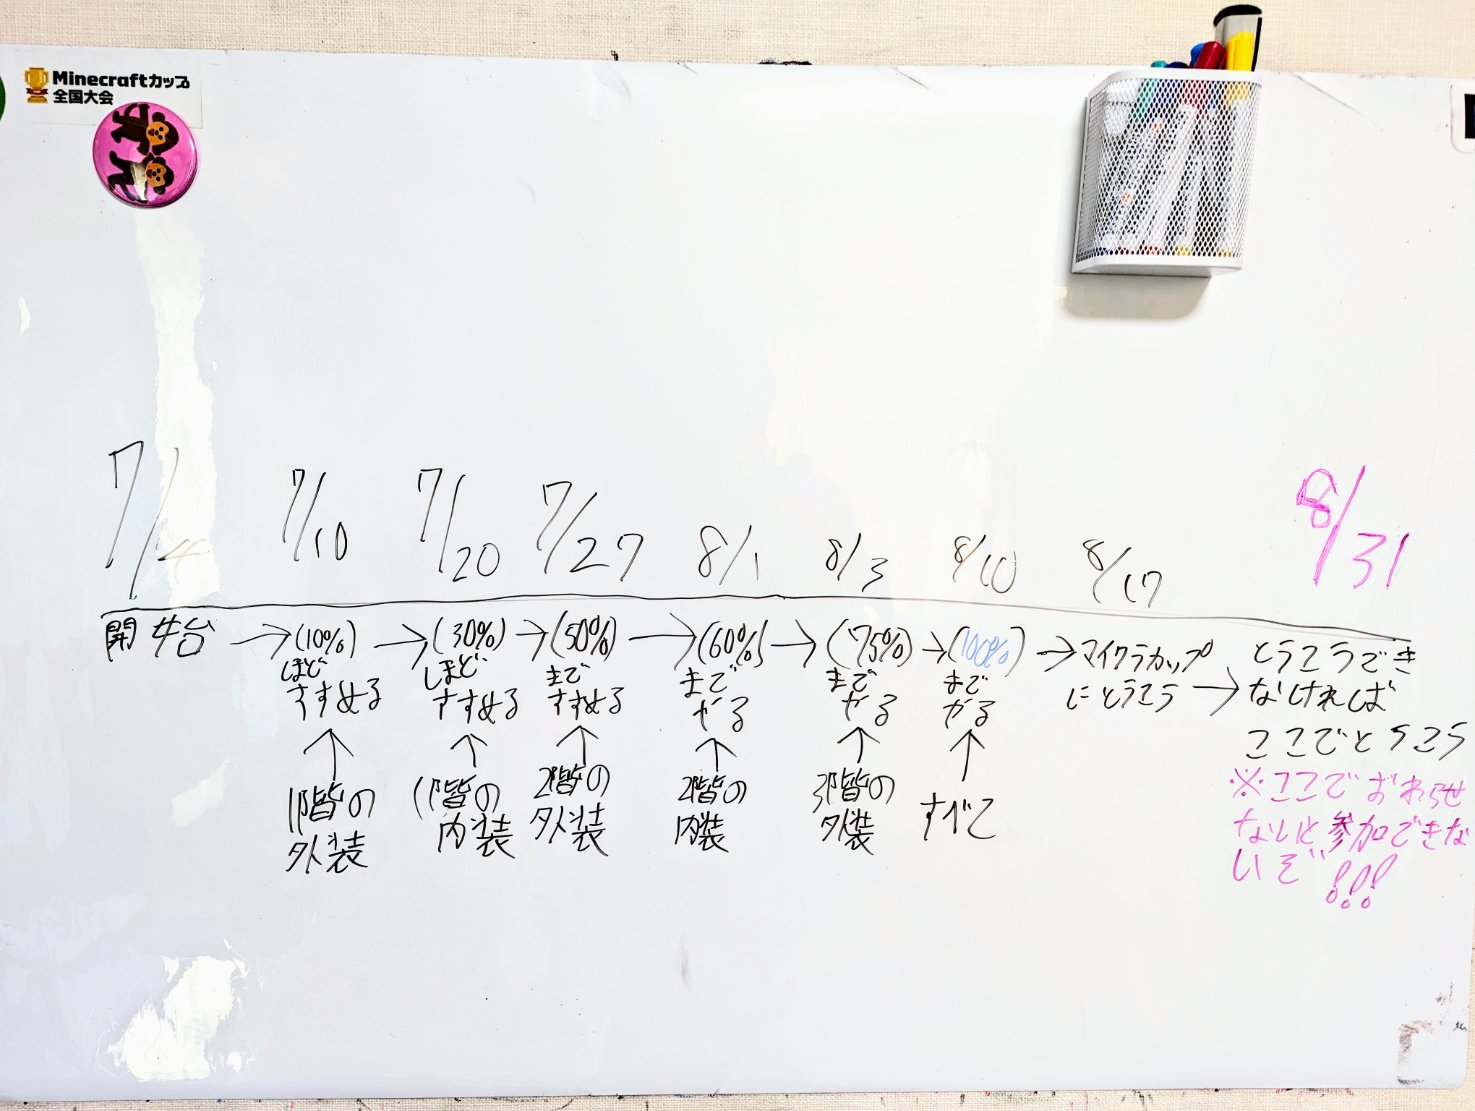 Minecraftカップ
全国大会
7/4
7/10
7/20
7/27
8/1
8/3
8/10
8/17
8/31
開始
→(10%)
ほど
すすめる
↑
1階の
外装
→(30%)
ほど
すすめる
↑
1階の
内装
→(50%)
まで
すすめる
↑
2階の
外装
→(60%)
まで
やる
↑
2階の
内装
→(75%)
まで
やる
↑
3階の
外装
→(100%)
まで
やる
↑
すべて
→マイクラカップ
にとうこう→
とうこうでき
なければ
ここでとうこう
※ここでおわらせ
ないと参加できな
いぞ!!!